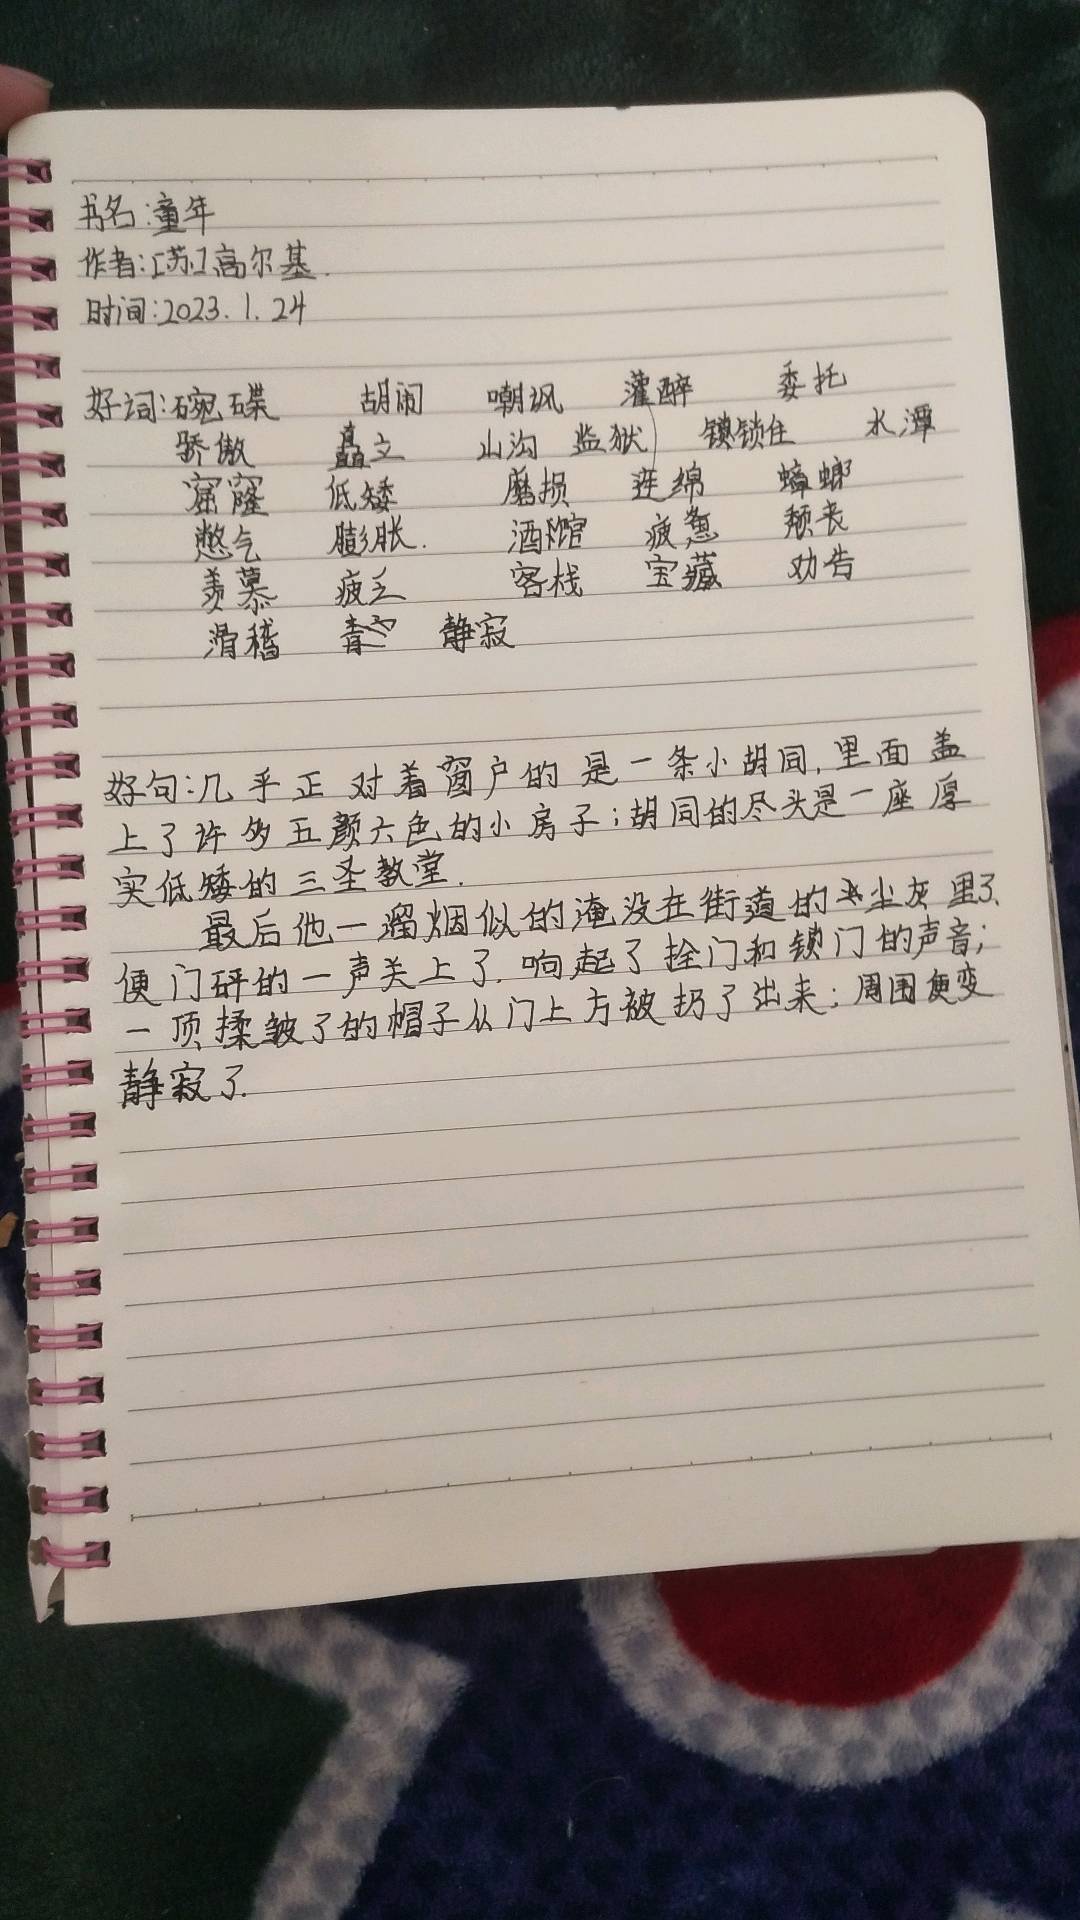 书名:童年
作者:[苏]高尔基.
时间:2023.1.24
好词:碗碟 胡闹 嘲讽 灌醉 委托
骄傲 矗立 山沟 监狱 锁住 水潭
窟窿 低矮 磨损 连绵 蟑螂
憋气 膨胀. 酒馆 疲惫 颓丧
羡慕 疲乏 客栈 宝藏 劝告
滑稽 静寂
好句:几乎正对着窗户的是一条小胡同,里面盖
上了许多五颜六色的小房子;胡同的尽头是一座厚
实低矮的三圣教堂.
最后他一溜烟似的淹没在街道的尘灰里了、
便门砰的一声关上了.响起了拴门和锁门的声音;
一顶揉皱了的帽子从门上方被扔了出来;周围便变
静寂了.